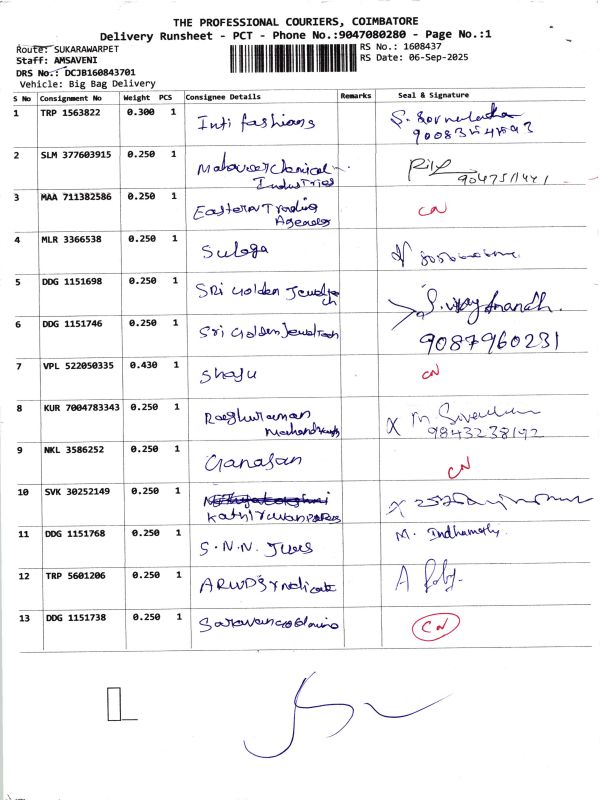 THE PROFESSIONAL COURIERS, COIMBATORE
Delivery Runsheet - PCT - Phone No.:9047080280 - Page No.:1
Route: SUKARAWARPET
RS No.: 1608437
Staff: AMSAVENI
RS Date: 06-Sep-2025
DRS No.: DCJB160843701
Vehicle: Big Bag Delivery
S No Consignment No Weight PCS Consignee Details Remarks Seal & Signature
1 TRP 1563822 0.300 1 Inti fashions
2 SLM 377603915 0.250 1 Mahaveer Chemical
Industries
3 MAA 711382586 0.250 1 Eastern Trading CN
Agencies
4 MLR 3366538 0.250 1 Suloga
5 DDG 1151698 0.250 1 SRi Golden Jewel Tech
6 DDG 1151746 0.250 1 Sri Golden Jewel Tech
S. Vijay Anandh.
9087960231
7 VPL 522050335 0.430 1 Shaju CN
8 KUR 7004783343 0.250 1 Raghuraman
9843238192
9 NKL 3586252 0.250 1 Ganasan CN
10 SVK 30252149 0.250 1
11 DDG 1151768 0.250 1 S.N.N. Jwes M. Indhumathy
12 TRP 5601206 0.250 1 ARWD Syndicate
13 DDG 1151738 0.250 1 CN